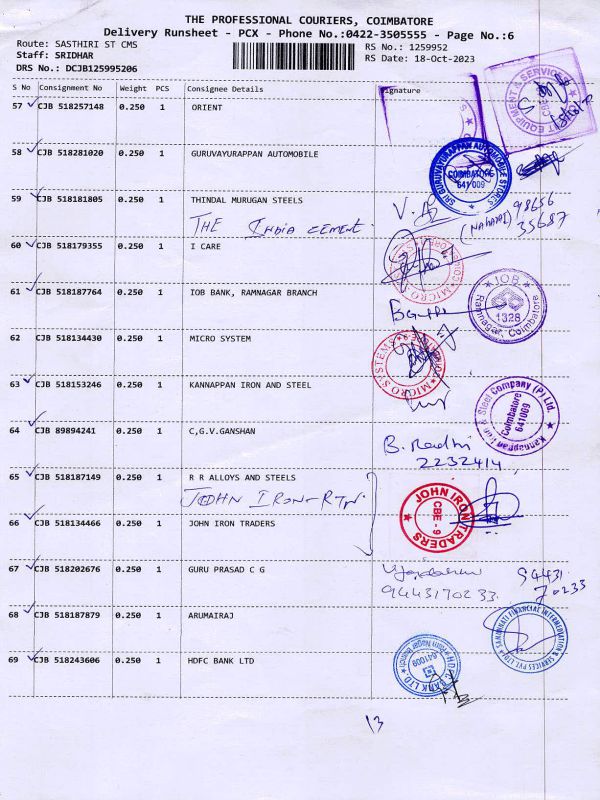 THE PROFESSIONAL COURIERS, COIMBATORE
Delivery Runsheet - PCX - Phone No.:0422-3505555 - Page No.:6
Route: SASTHIRI ST CMS
RS No.: 1259952
Staff: SRIDHAR
RS Date: 18-Oct-2023
DRS No.: DCJB125995206
S No Consignment No Weight PCS Consignee Details Signature
57 CJB 518257148 0.250 1 ORIENT
EQUIPMENT & SERVICES
58 CJB 518281020 0.250 1 GURUVAYURAPPAN AUTOMOBILE
SRI GURUVAYURAPPAN AUTOMOBILE STORES
COIMBATORE
641 009
59 CJB 518181805 0.250 1 THINDAL MURUGAN STEELS
THE India cement
98656
35687
60 CJB 518179355 0.250 1 I CARE
MICRO SYSTEMS
61 CJB 518187764 0.250 1 IOB BANK, RAMNAGAR BRANCH
IOB
1328
Ramnagar, Coimbatore
62 CJB 518134430 0.250 1 MICRO SYSTEM
MICRO SYSTEMS
63 CJB 518153246 0.250 1 KANNAPPAN IRON AND STEEL
Kannappan Iron & Steel Company (P) Ltd.
Coimbatore
641009
64 CJB 89894241 0.250 1 C,G.V.GANSHAN
B. Radhi
2232414
65 CJB 518187149 0.250 1 R R ALLOYS AND STEELS
JOHN IRON-RTN
66 CJB 518134466 0.250 1 JOHN IRON TRADERS
JOHN IRON TRADERS
CBE - 9
67 CJB 518202676 0.250 1 GURU PRASAD C G
9443170233
94431
70233
68 CJB 518187879 0.250 1 ARUMAIRAJ
FINANCIAL INTERMEDIATION & SERVICES PVT LTD
69 CJB 518243606 0.250 1 HDFC BANK LTD
HDFC BANK LTD
Ram Nagar Branch
641009
13